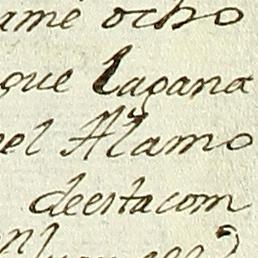 ame ocho
que Lagana
el Alamo
deestacom